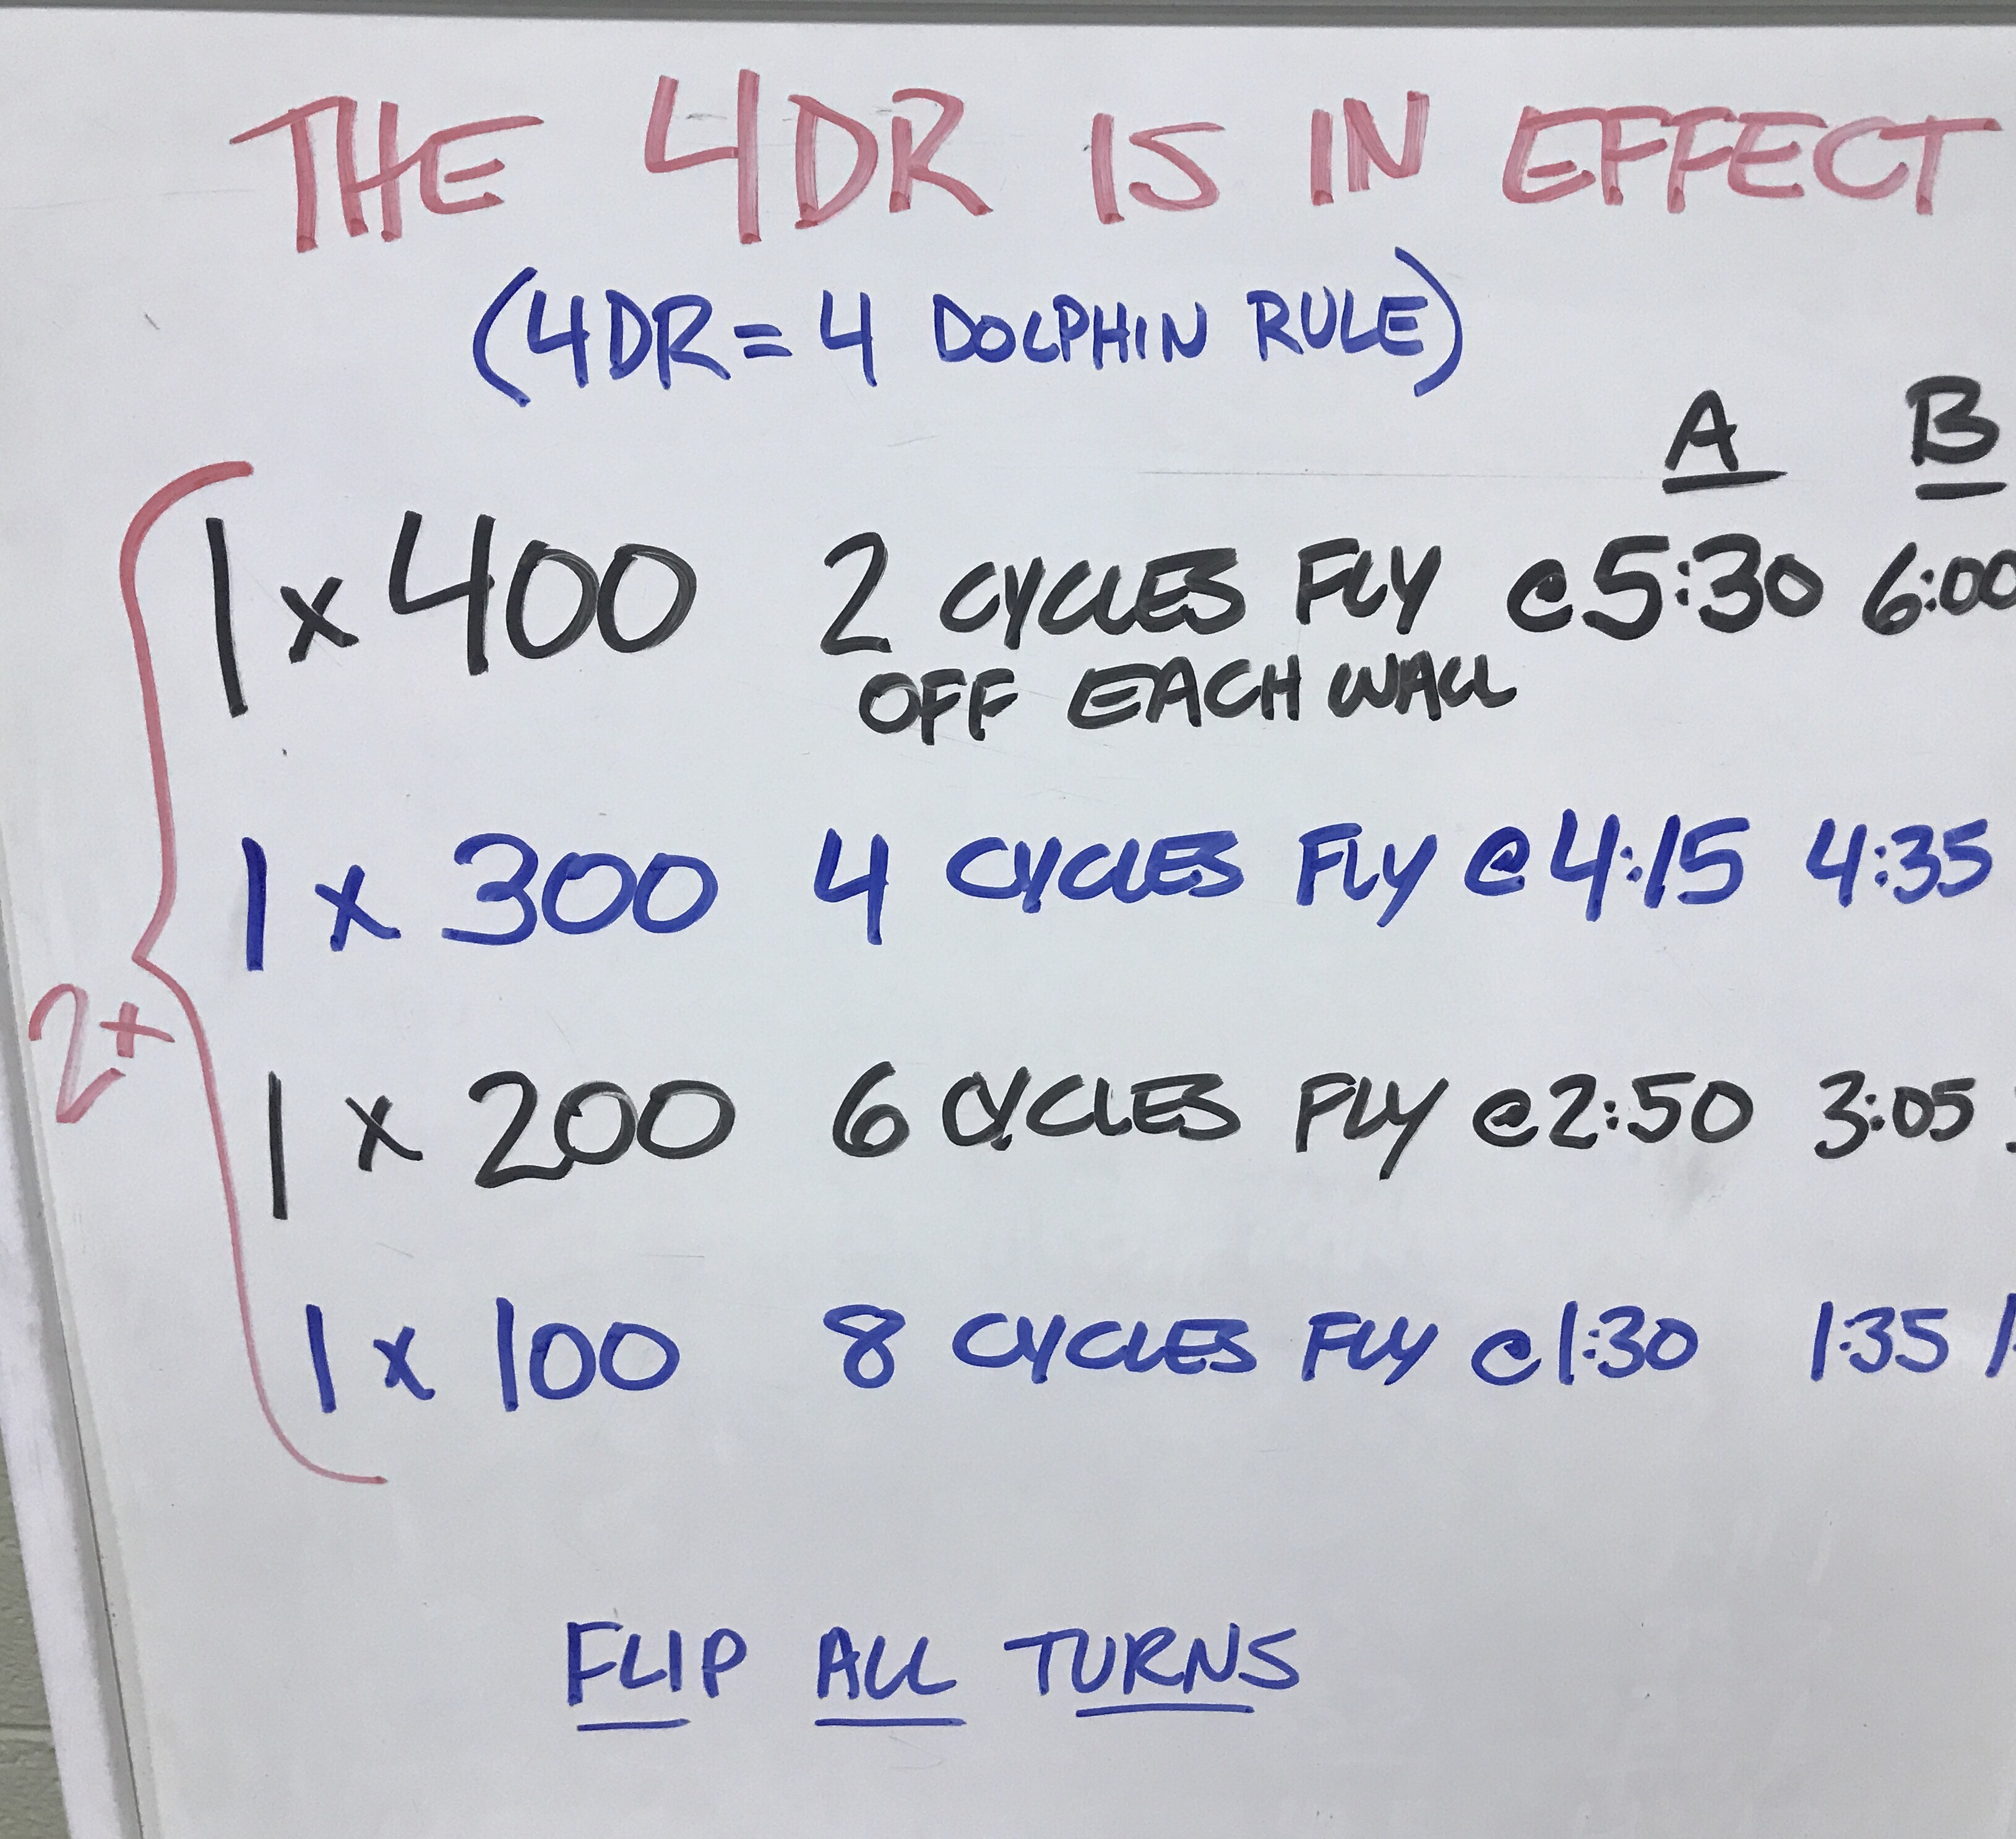 THE 4DR IS IN EFFECT
(4DR = 4 DOLPHIN RULE)
A B
1 x 400 2 CYCLES FLY @ 5:30 6:00
OFF EACH WALL
1 x 300 4 CYCLES FLY @ 4:15 4:35
2x
1 x 200 6 CYCLES FLY @ 2:50 3:05
1 x 100 8 CYCLES FLY @ 1:30 1:35
FLIP ALL TURNS